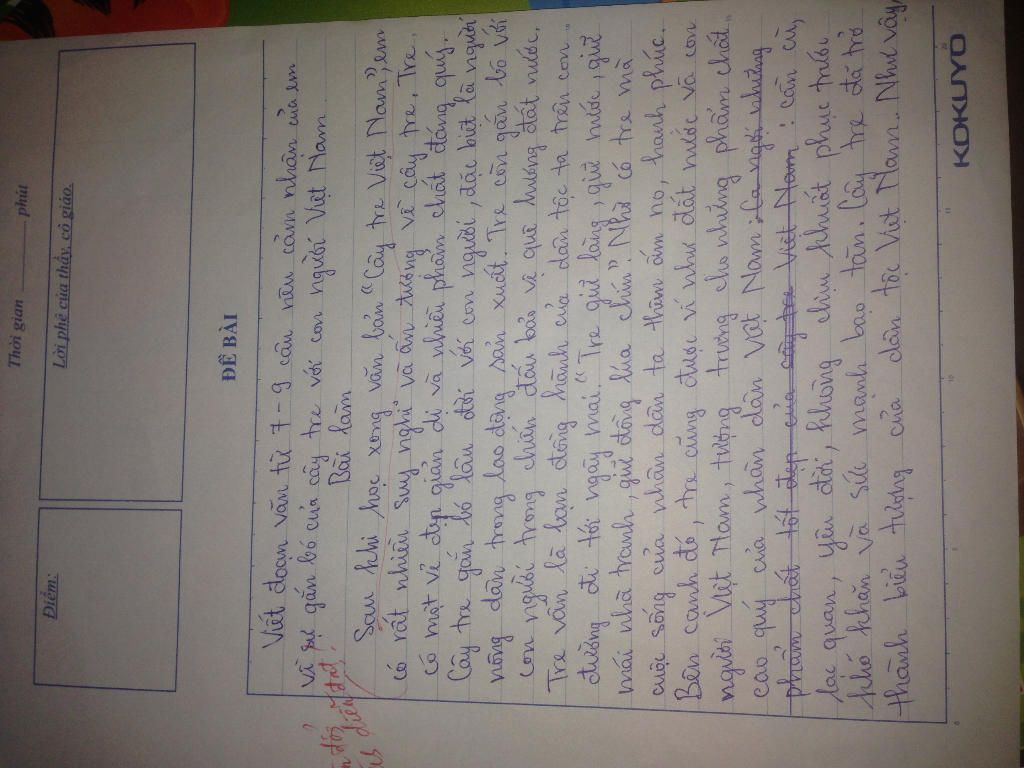 Thời gian ______ phút
Điểm:
Lời phê của thầy, cô giáo.
ĐỀ BÀI
Viết đoạn văn từ 7 - 9 câu nêu cảm nhận của em
về sự gắn bó của cây tre với con người Việt Nam
Bài làm
Sau khi học xong văn bản "Cây tre Việt Nam", em
có rất nhiều suy nghĩ và ấn tượng về cây tre. Tre
có một vẻ đẹp giản dị và nhiều phẩm chất đáng quý.
Cây tre gắn bó lâu đời với con người, đặc biệt là người
nông dân trong lao động sản xuất. Tre còn gắn bó với
con người trong chiến đấu bảo vệ quê hương đất nước.
Tre vẫn là bạn đồng hành của dân tộc ta trên con
đường đi tới ngày mai. "Tre giữ làng, giữ nước, giữ
mái nhà tranh, giữ đồng lúa chín." Nhờ có tre mà
cuộc sống của nhân dân ta thêm ấm no, hạnh phúc.
Bên cạnh đó, tre cũng được ví như đất nước và con
người Việt Nam, tượng trưng cho những phẩm chất
cao quý của nhân dân Việt Nam: Ca ngợi những
phẩm chất tốt đẹp của cây tre Việt Nam: cần cù,
lạc quan, yêu đời, không chịu khuất phục trước
khó khăn và sức mạnh bạo tàn. Cây tre đã trở
thành biểu tượng của dân tộc Việt Nam. Như vậy
diễn đạt.
KOKUYO